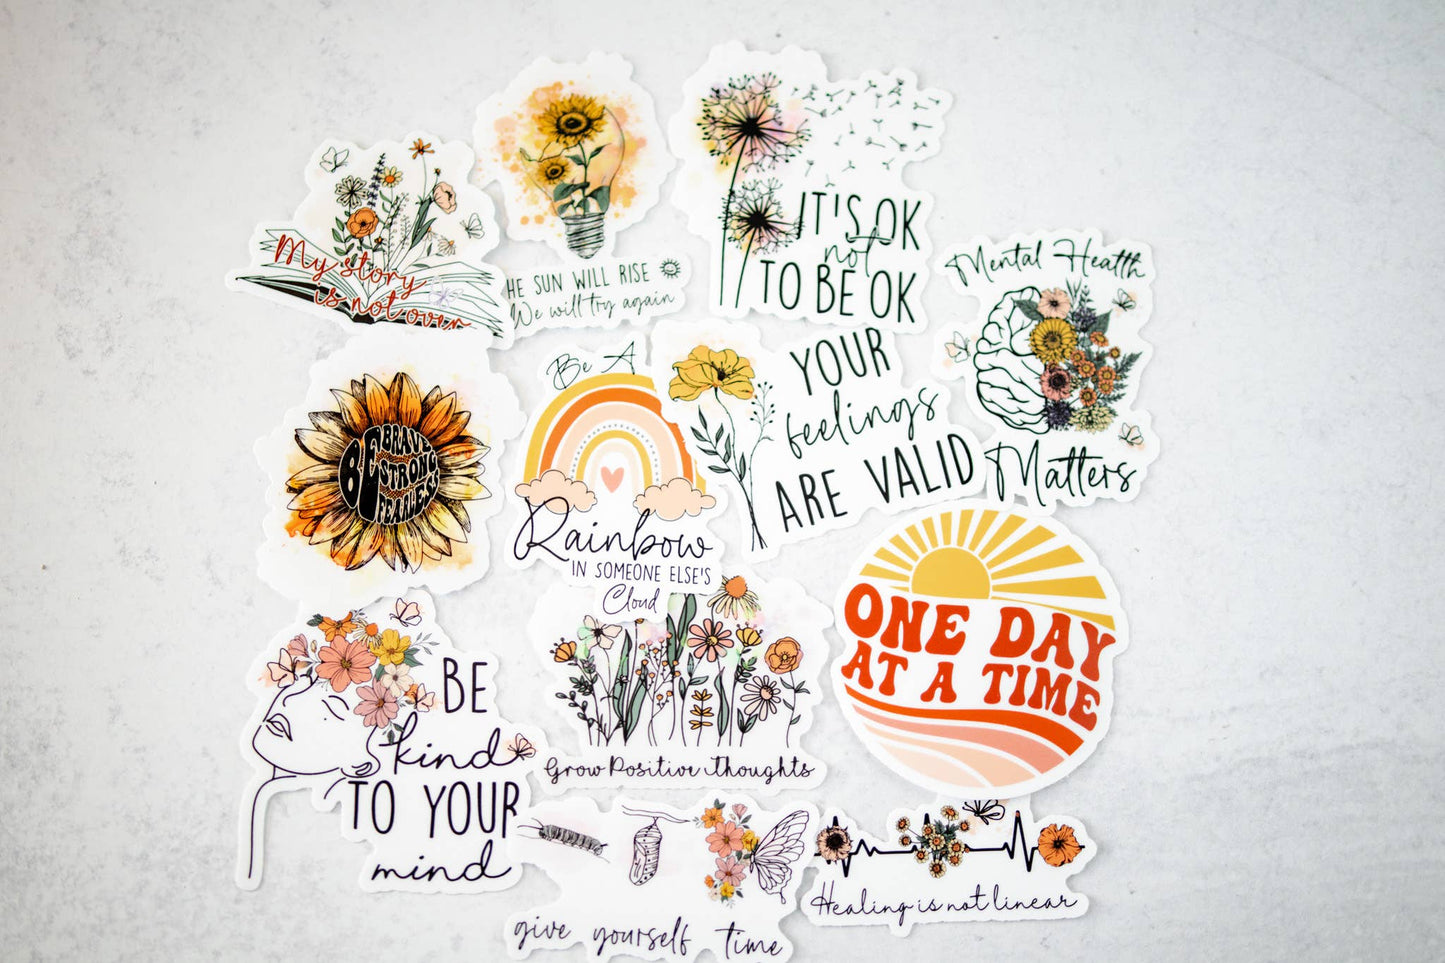 My story
is not over
HE SUN WILL RISE
We will try again
IT'S OK
not
TO BE OK
Mental Health
Matters
BE
BRAVE
STRONG
FEARLESS
Be A
Rainbow
IN SOMEONE ELSE'S
Cloud
YOUR
feelings
ARE VALID
ONE DAY
AT A TIME
BE
kind
TO YOUR
mind
Grow Positive thoughts
give yourself time
Healing is not linear